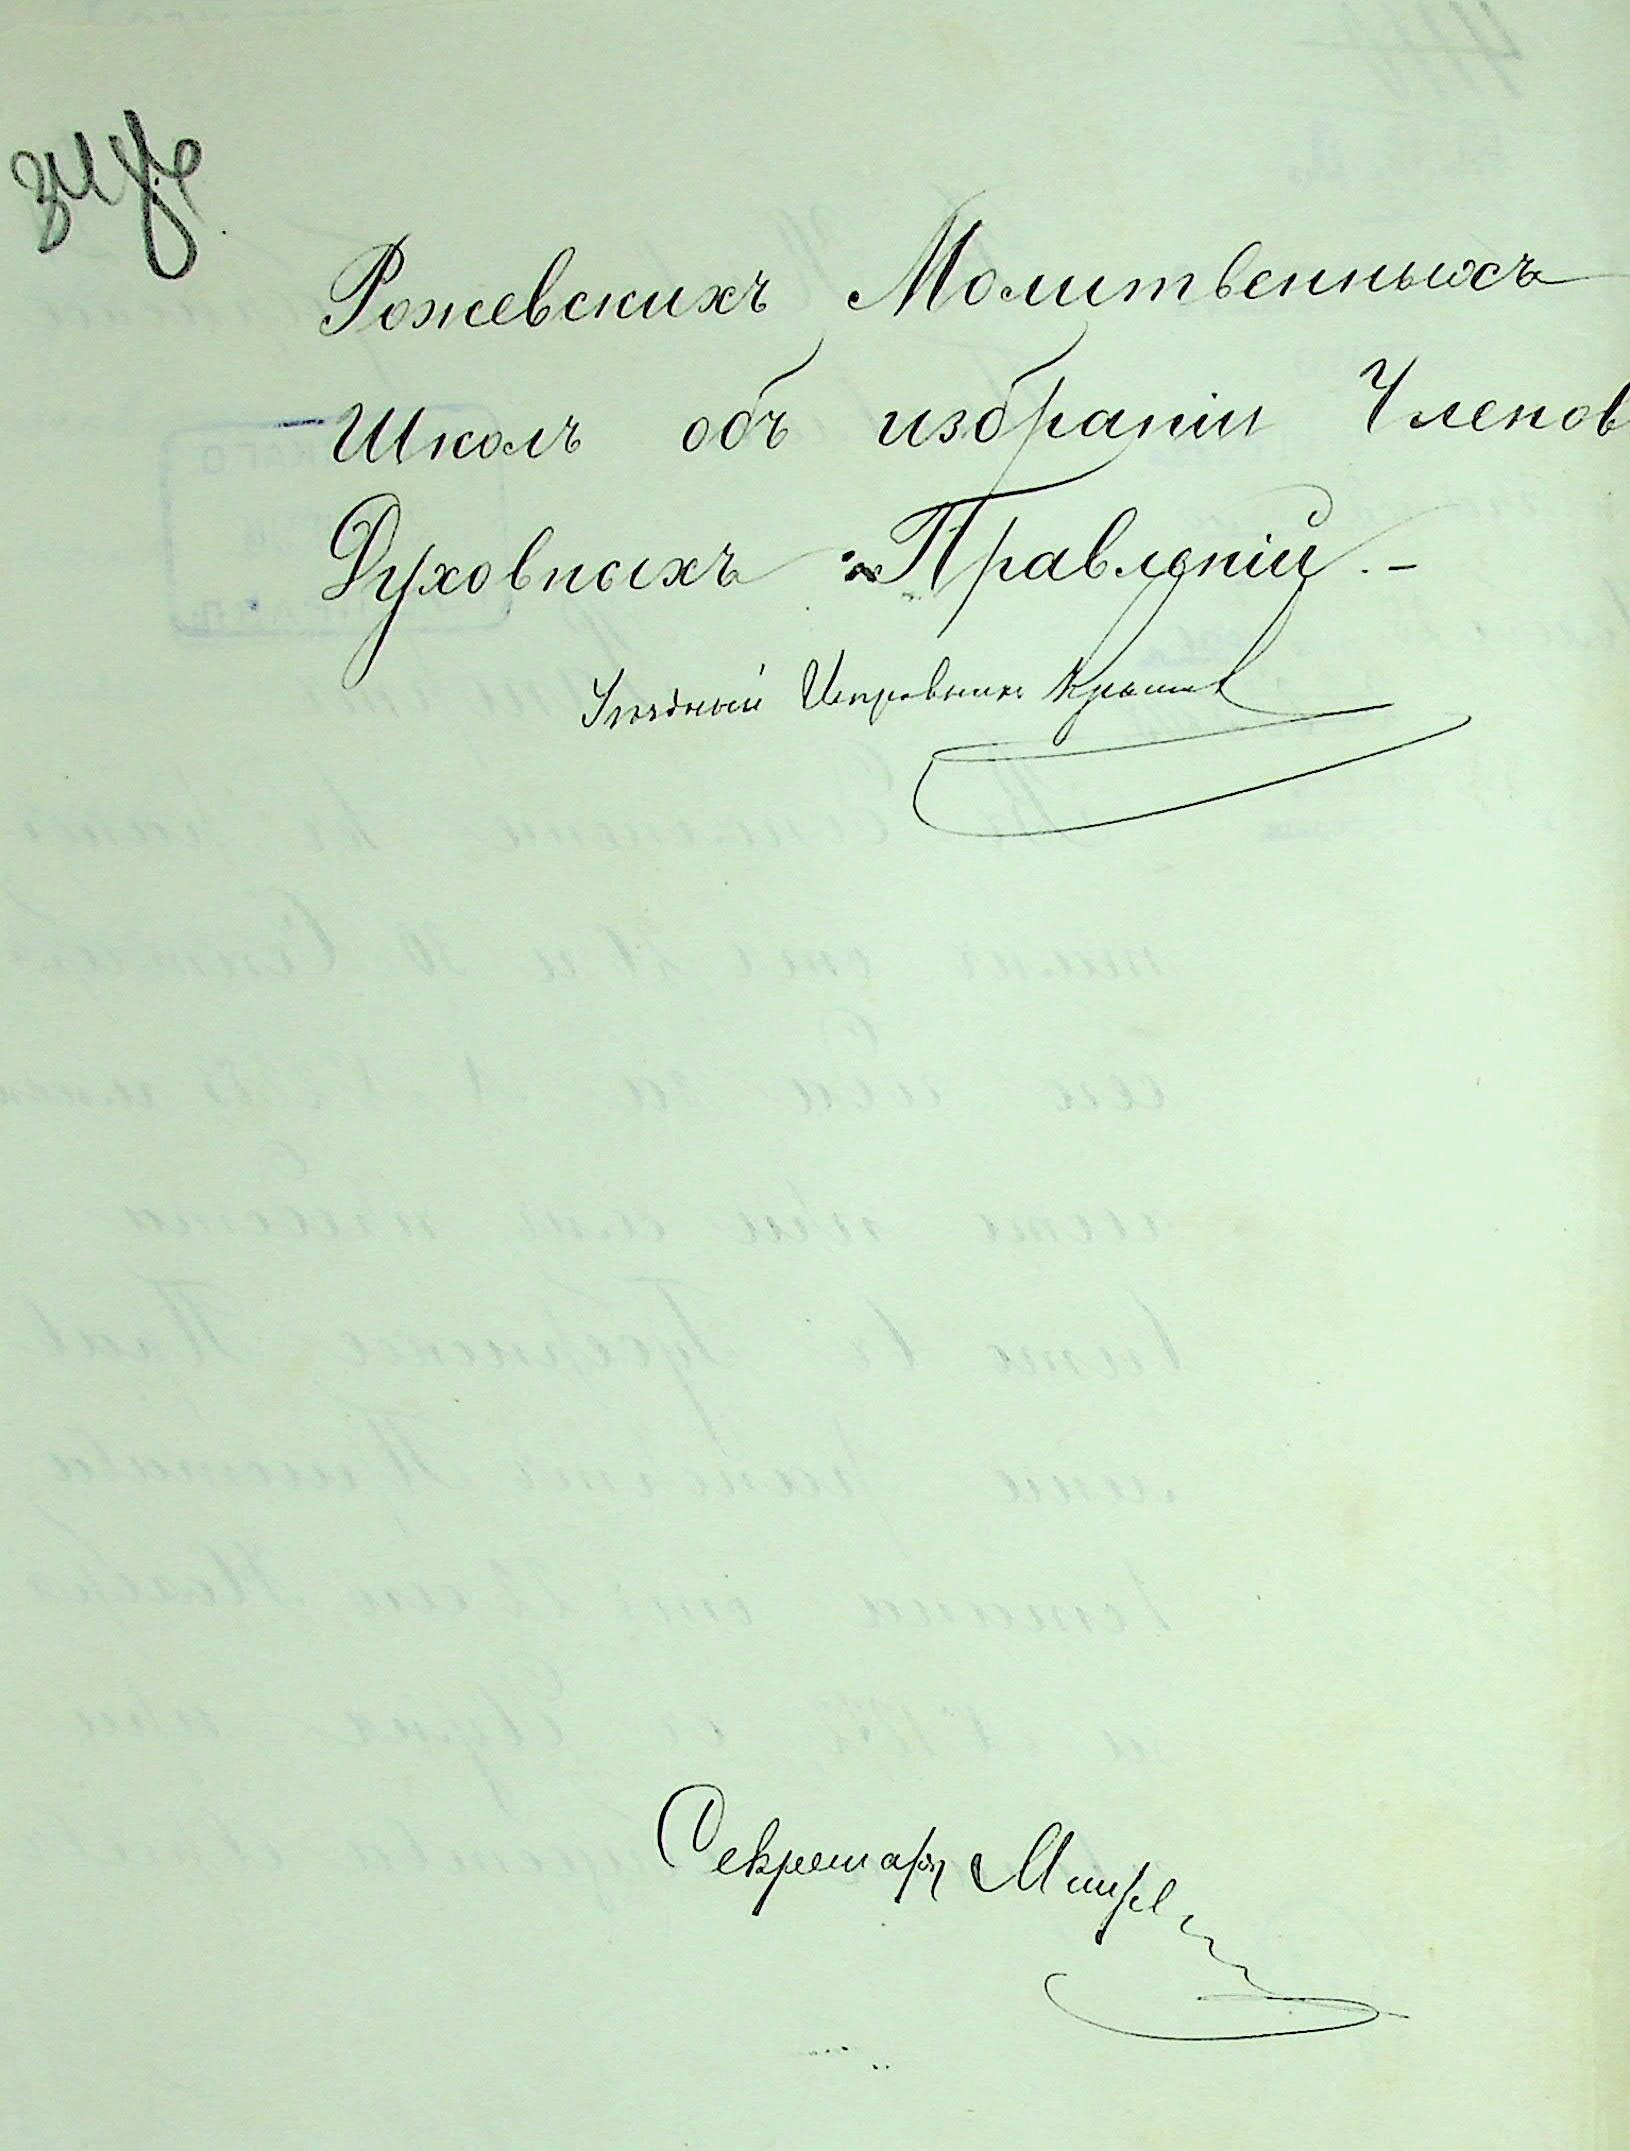 Рожевскихъ Молитвенныхъ
Школъ объ избраніи Членов
Духовныхъ Правленій.-
Уѣздный Исправникъ
Секретарь